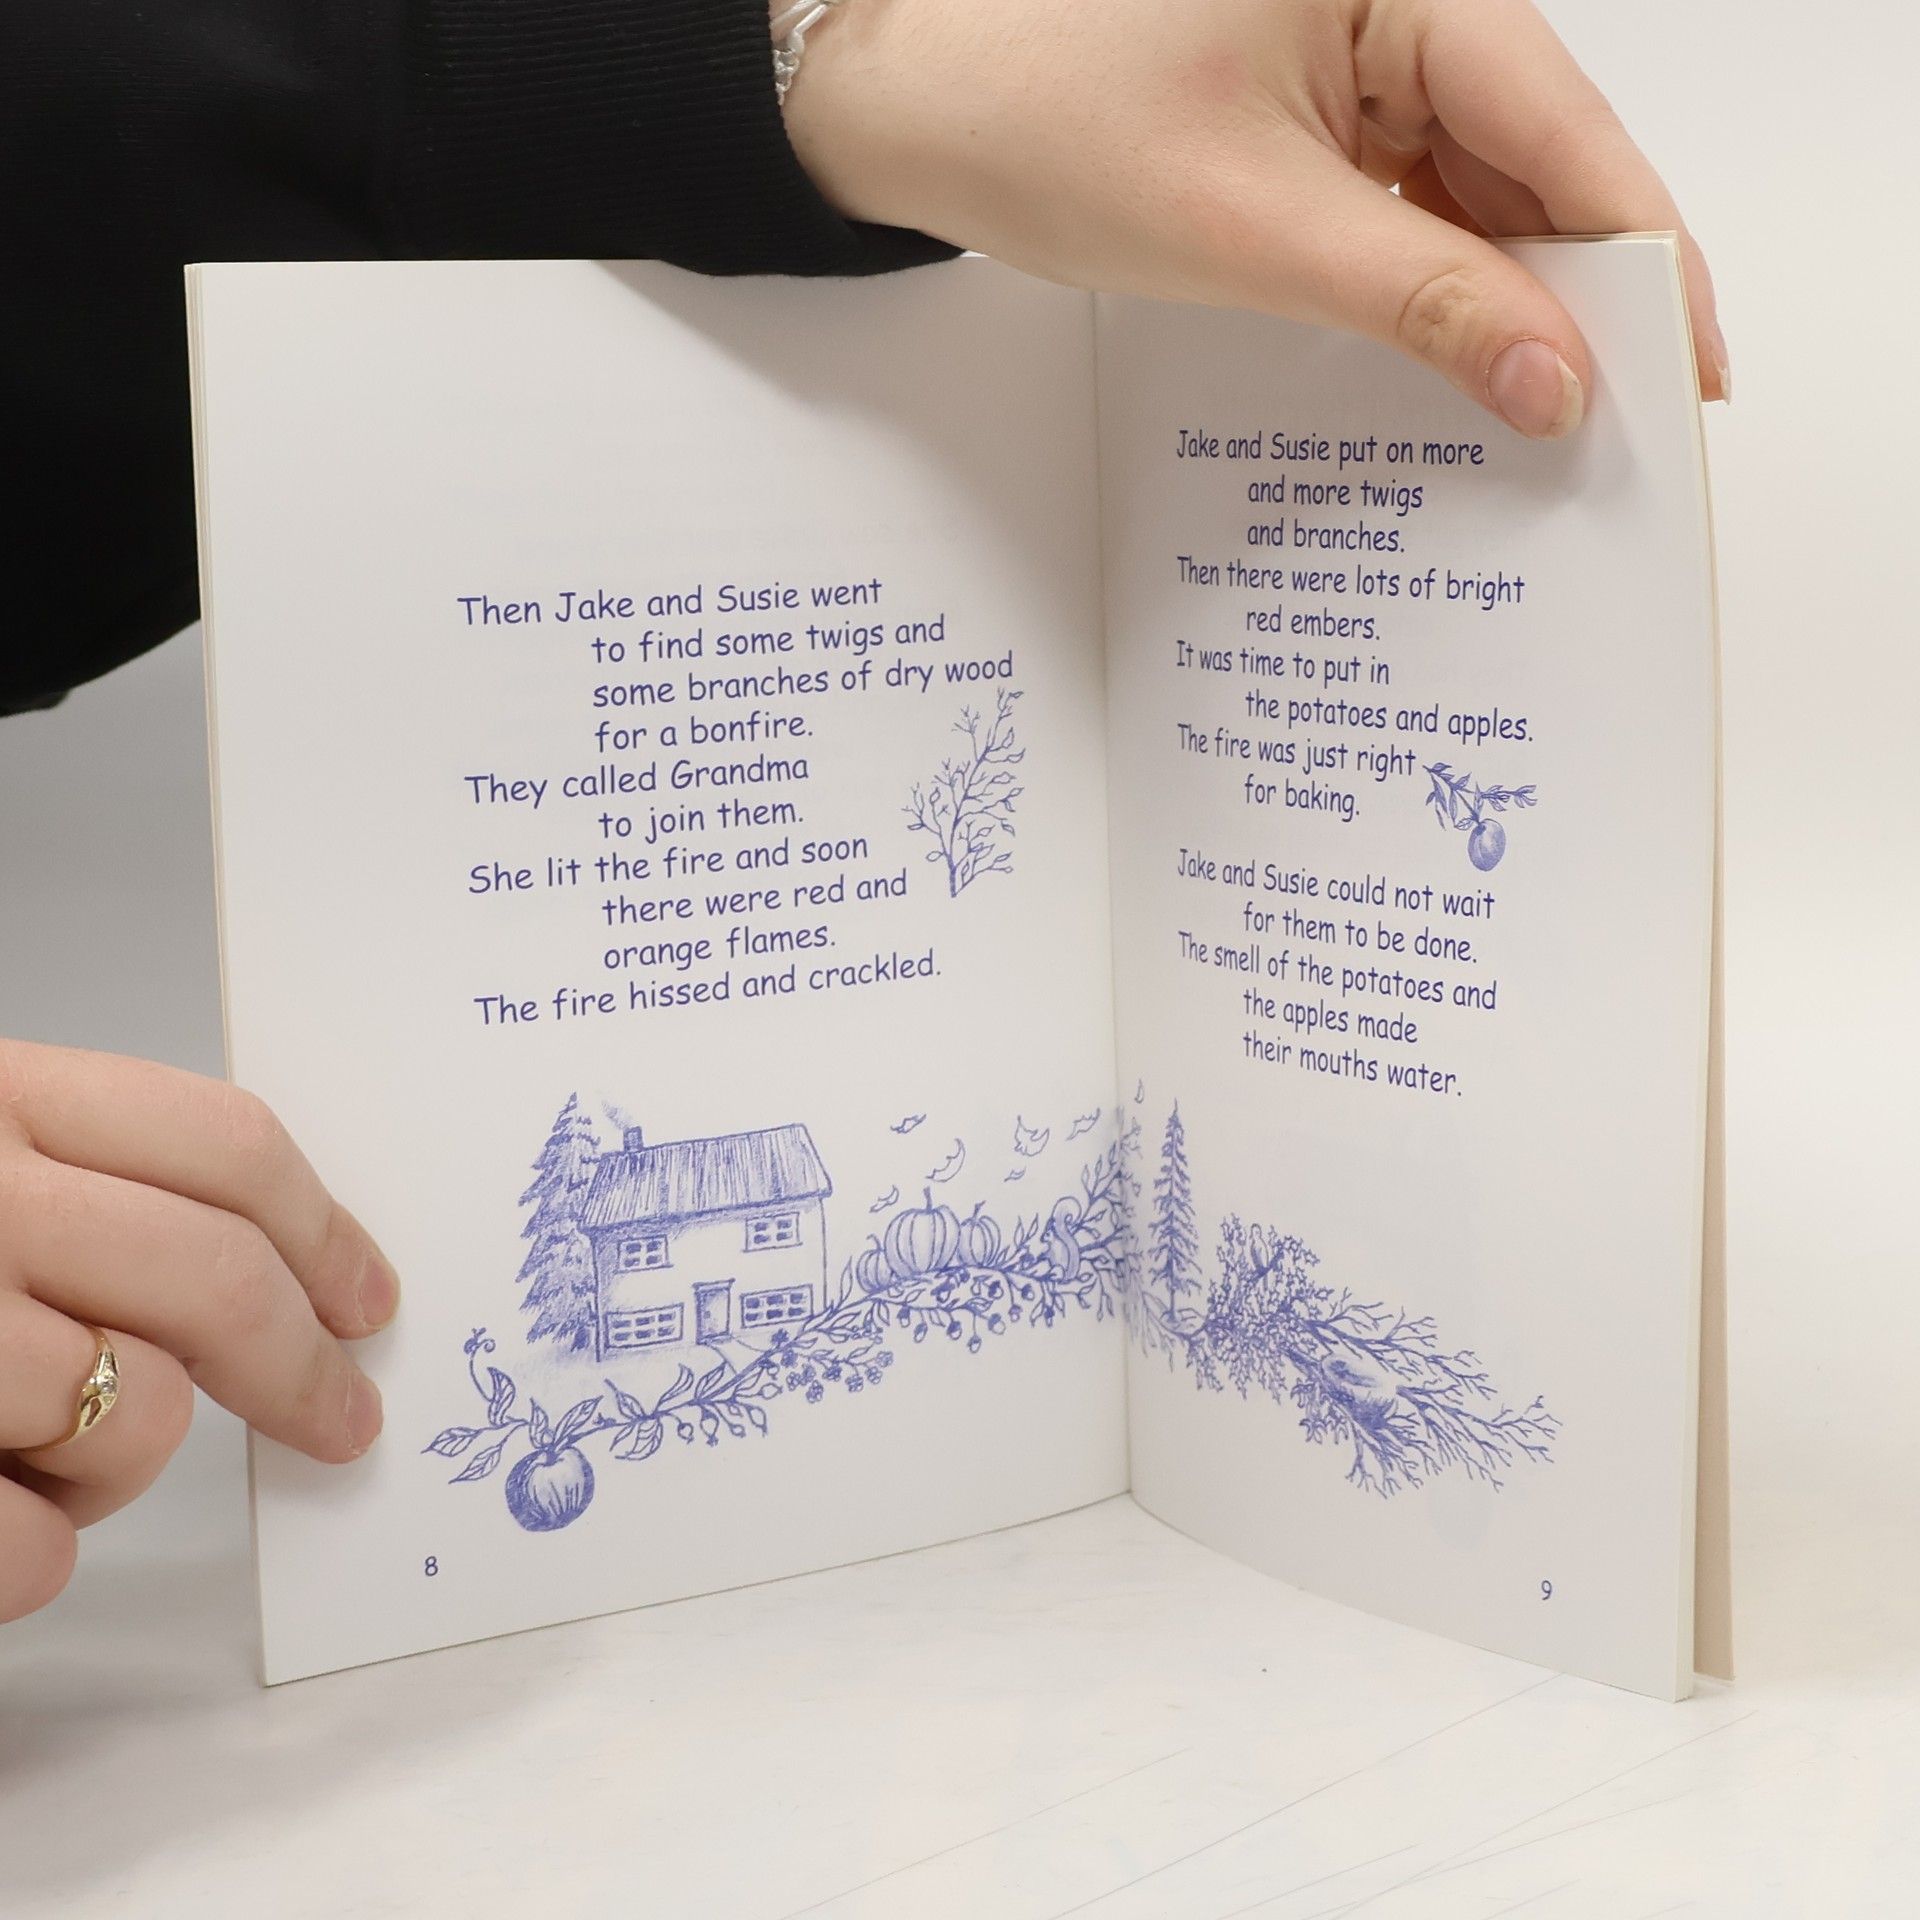 Then Jake and Susie went
to find some twigs and
some branches of dry wood
for a bonfire.
They called Grandma
to join them.
She lit the fire and soon
there were red and
orange flames.
The fire hissed and crackled.
8
Jake and Susie put on more
and more twigs
and branches.
Then there were lots of bright
red embers.
It was time to put in
the potatoes and apples.
The fire was just right
for baking.
Jake and Susie could not wait
for them to be done.
The smell of the potatoes and
the apples made
their mouths water.
9